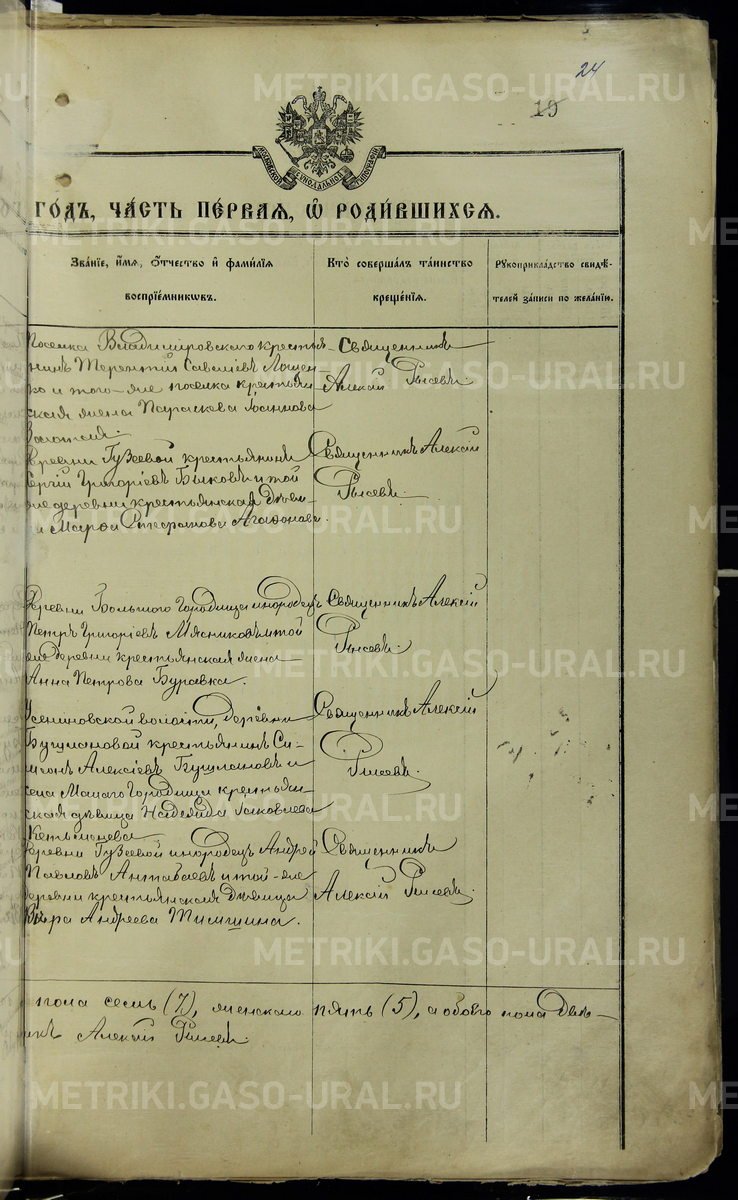 24
19
МОСКОВСКОЙ СѴНОДАЛЬНОЙ ТИПОГРАФІИ
ГО́ДЪ, ЧА́СТЬ ПЕ́РВАЯ, Ѡ҆ РОДИ́ВШИХСЯ.
Зва́нїе, и҆́мя, ѻ҆́тчество и҆ фами́лїя
воспрїе́мникѡвъ.
Кто̀ соверша́лъ та́инство
креще́нїя.
Рꙋкоприкла́дство свидѣ́-
телей за́писи по жела́нїю.
Поселка Владиміровскаго крестья-
нинъ Терентій Савѣевъ Лоцен-
ко и того-же поселка крестьян-
ская жена Параскева Іоаннова
Золотая.
Священникъ
Алексій Рысевъ
Деревни Гузеевой крестьянинъ
Сергій Григоріевъ Быковъ и той
же деревни крестьянская дѣви-
ца Марѳа Стефанова Агаѳонова.
Священникъ Алексій
Рысевъ.
Деревни Большого Городища инородецъ
Петръ Григоріевъ Мясниковъ и той
же деревни крестьянская жена
Анна Петрова Буравка.
Священникъ Алексій
Рысевъ.
Усениновской волости, деревни
Бушлановой крестьянинъ Си-
меонъ Алексіевъ Бушлановъ и
села Малаго Городища крестьян-
ская дѣвица Надежда Іаковлева
Кетьманева
Священникъ Алексій
Рысевъ.
Деревни Гузеевой инородецъ Андрей
Павловъ Антабаевъ и той-же
деревни крестьянская дѣвица
Вѣра Андреева Тимшина.
Священникъ
Алексій Рысевъ.
пола семь (7), женскаго пять (5), а обоего пола двѣ-
икъ Алексій Рысевъ.